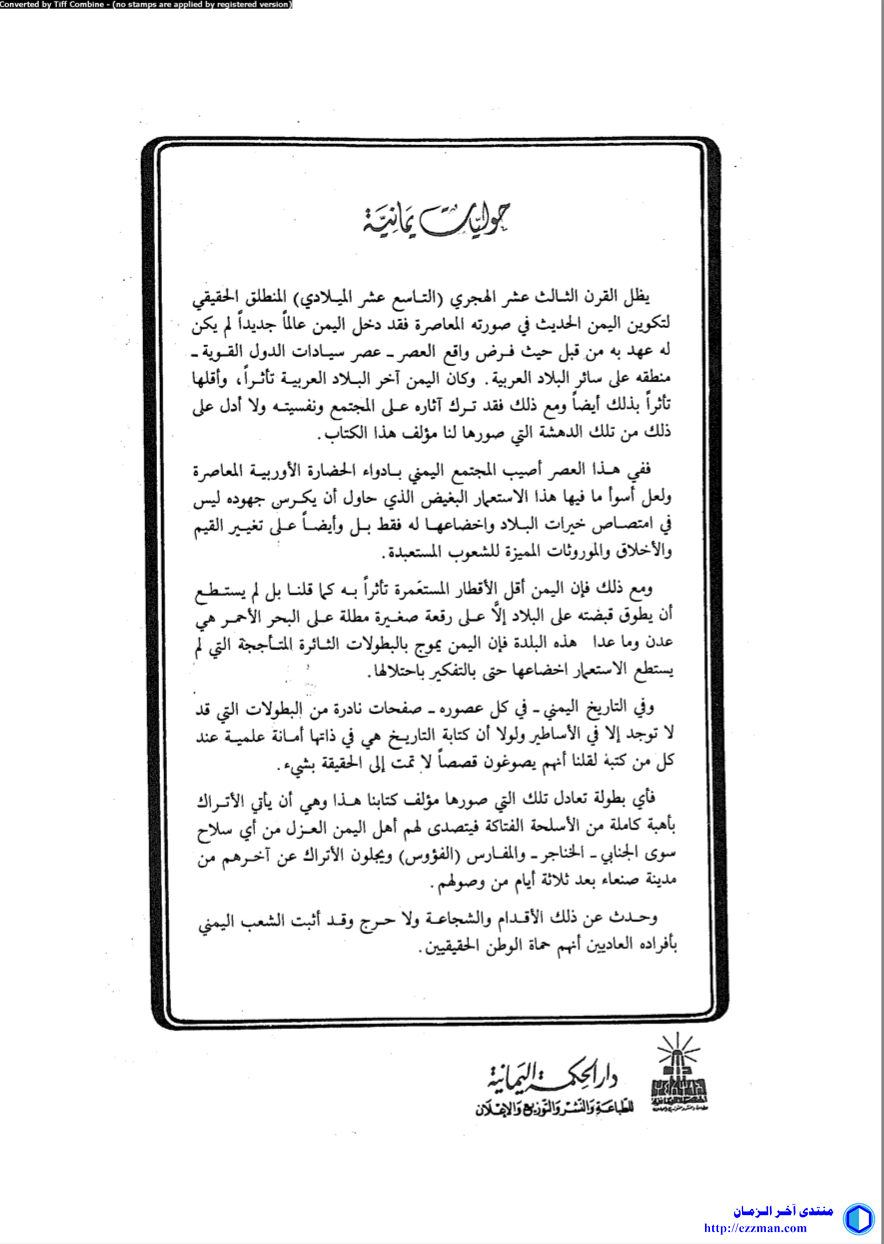 Converted by Tiff Combine - (no stamps are applied by registered version)
حوليات يمانية
يظل القرن الثالث عشر الهجري (التاسع عشر الميلادي) المنطلق الحقيقي
لتكوين اليمن الحديث في صورته المعاصرة فقد دخل اليمن عالماً جديداً لم يكن
له عهد به من قبل حيث فرض واقع العصر - عصر سيادات الدول القوية -
منطقه على سائر البلاد العربية. وكان اليمن آخر البلاد العربية تأثراً، وأقلها
تأثراً بذلك أيضاً ومع ذلك فقد ترك آثاره على المجتمع ونفسيته ولا أدل على
ذلك من تلك الدهشة التي صورها لنا مؤلف هذا الكتاب.
ففي هذا العصر أصيب المجتمع اليمني بادواء الحضارة الأوربية المعاصرة
ولعل أسوأ ما فيها هذا الاستعمار البغيض الذي حاول أن يكرس جهوده ليس
في امتصاص خيرات البلاد واخضاعها له فقط بل وأيضاً على تغيير القيم
والأخلاق والموروثات المميزة للشعوب المستعبدة.
ومع ذلك فإن اليمن أقل الأقطار المستعَمرة تأثراً به كما قلنا بل لم يستطع
أن يطوق قبضته على البلاد إلاَّ على رقعة صغيرة مطلة على البحر الأحمر هي
عدن وما عدا هذه البلدة فإن اليمن يموج بالبطولات الثائرة المتأججة التي لم
يستطع الاستعمار اخضاعها حتى بالتفكير باحتلالها.
وفي التاريخ اليمني - في كل عصوره - صفحات نادرة من البطولات التي قد
لا توجد إلا في الأساطير ولولا أن كتابة التاريخ هي في ذاتها أمانة علمية عند
كل من كتبه لقلنا أنهم يصوغون قصصاً لا تمت إلى الحقيقة بشيء.
فأي بطولة تعادل تلك التي صورها مؤلف كتابنا هذا وهي أن يأتي الأتراك
بأهبة كاملة من الأسلحة الفتاكة فيتصدى لهم أهل اليمن العزل من أي سلاح
سوى الجنابي - الخناجر - والمفارس (الفؤوس) ويجلون الأتراك عن آخرهم من
مدينة صنعاء بعد ثلاثة أيام من وصولهم.
وحدث عن ذلك الأقدام والشجاعة ولا حرج وقد أثبت الشعب اليمني
بأفراده العاديين أنهم حماة الوطن الحقيقيين.
دار الحكمة اليمانية
للطباعة والنشر والتوزيع والإعلان
منتدى آخر الزمان
http://ezzman.com